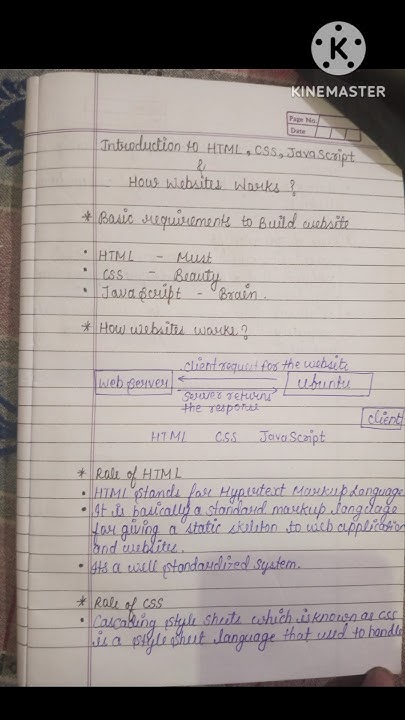 KINEMASTER
Page No.
Date
Introduction to HTML, CSS, JavaScript
&
How Websites Works?
* Basic requirements to Build website
• HTML - Must
• CSS - Beauty
• JavaScript - Brain.
* How websites works?
client request for the website
web server
Ubuntu
server returns
the response
client
HTML CSS JavaScript
* Role of HTML
• HTML stands for Hypertext Markup Language
• It is basically a standard markup language
for giving a static skeleton to web application
and websites.
• Its a well standardized system.
* Role of CSS
• Cascading style sheets which is known as css
is a style sheet language that used to handle